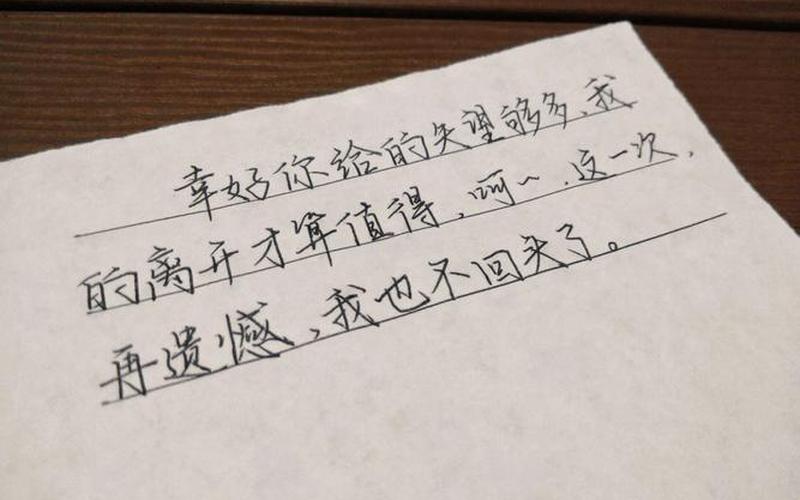 幸好你给的失望够多,我
的离开才算值得,呵~,这一次,
再遗憾,我也不回头了。